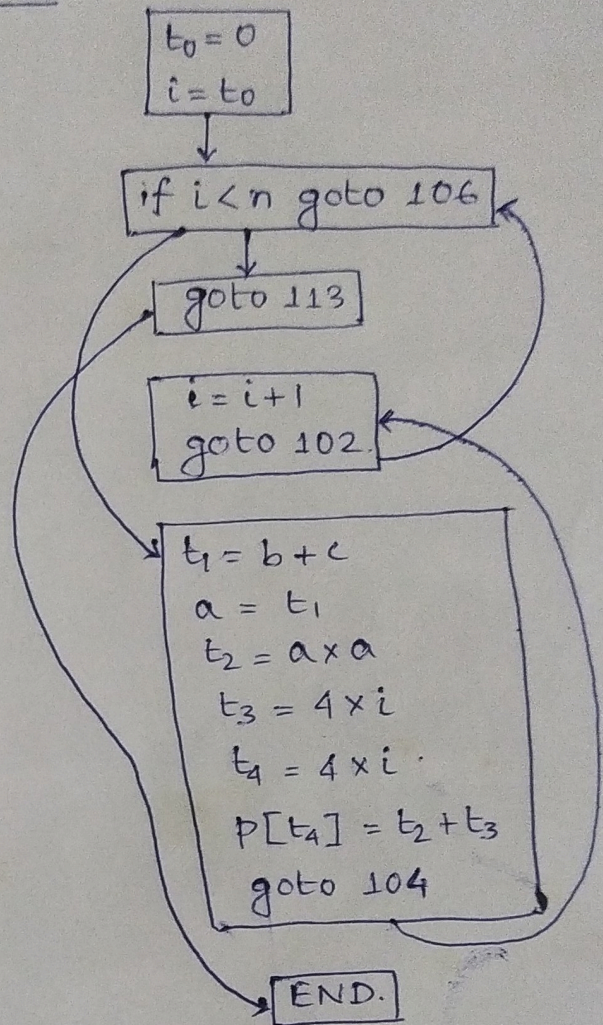 t₀ = 0
i = t₀
if i < n goto 106
goto 113
i = i + 1
goto 102.
t₁ = b + c
a = t₁
t₂ = a × a
t₃ = 4 × i
t₄ = 4 × i
P[t₄] = t₂ + t₃
goto 104
END.